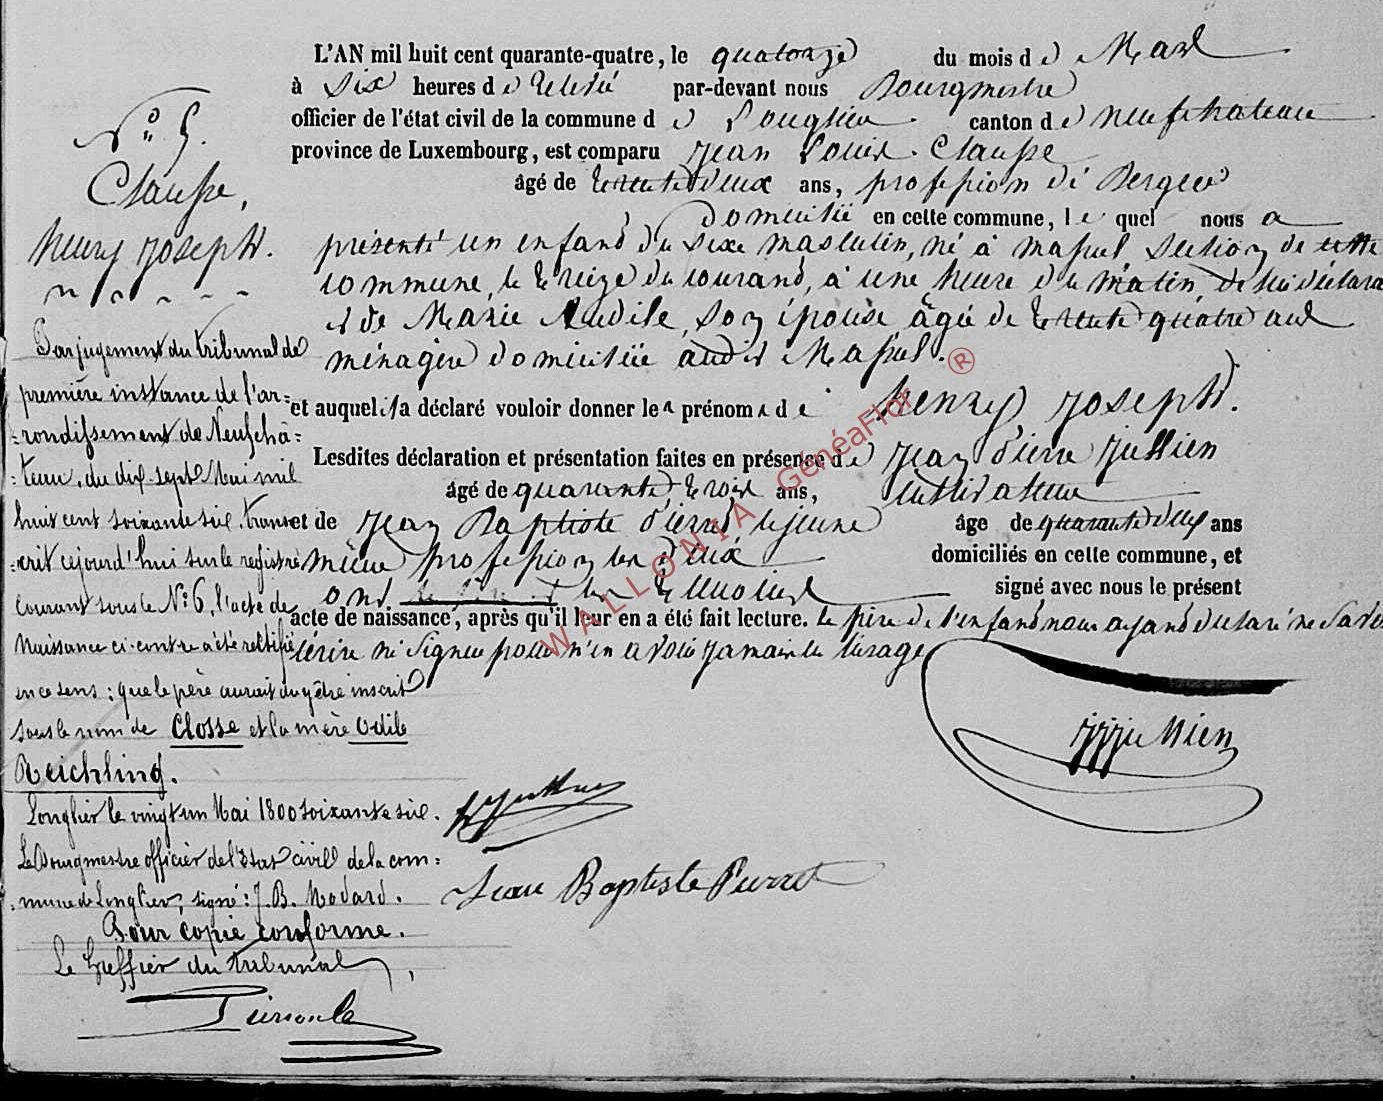 N° 5.
Clausse,
henry joseph.
L'AN mil huit cent quarante-quatre, le quatorze du mois de Mars
à six heures de relevé par-devant nous Bourgmestre
officier de l'état civil de la commune de Longlier canton de neufchateau
province de Luxembourg, est comparu jean Louis Clausse
âgé de trente deux ans, profession de Berger
domicilié en cette commune, le quel nous a
présenté un enfand du sexe masculin, né à massul, section de cette
commune, le treize du courand, à une heure du matin, de lui déclara
et de Marie Audile, son épouse âgée de trente quatre ans
ménagère domiciliée audit Massul.
et auquel il a déclaré vouloir donner les prénoms de henry joseph.
Lesdites déclaration et présentation faites en présence de jean pierre jullien
âgé de quarante trois ans, cultivateur
et de jean Baptiste pierret lejeune âgé de quarante deux ans
même profession domiciliés en cette commune, et
ond signé avec nous le présent
acte de naissance, après qu'il leur en a été fait lecture. le père de l'enfand nous ayand declaré ne savoir
écrire ni signer pour n'en avoir jamais eu l'usage
Par jugement du tribunal de
première instance de l'ar=
=rondissement de Neufchâ=
=teau, du dix-sept Mai mil
huit cent soixante six, trans
=crit cejourd'hui sur le registre
courant sous le N° 6, l'acte de
Naissance ci-contre a été rectifié
en ce sens : que le père aurait du y être inscrit
sous le nom de Closse et la mère Odile
Reichling.
Longlier le vingt un Mai 1800 soixante six.
Le Bourgmestre officier de l'Etat civil de la com=
=mune de Longlier, signé : J. B. Modard.
Pour copie conforme.
Le Greffier du tribunal,
jpjullien
Jean Baptiste Pierret
WALLONIA GenéaFlor ®